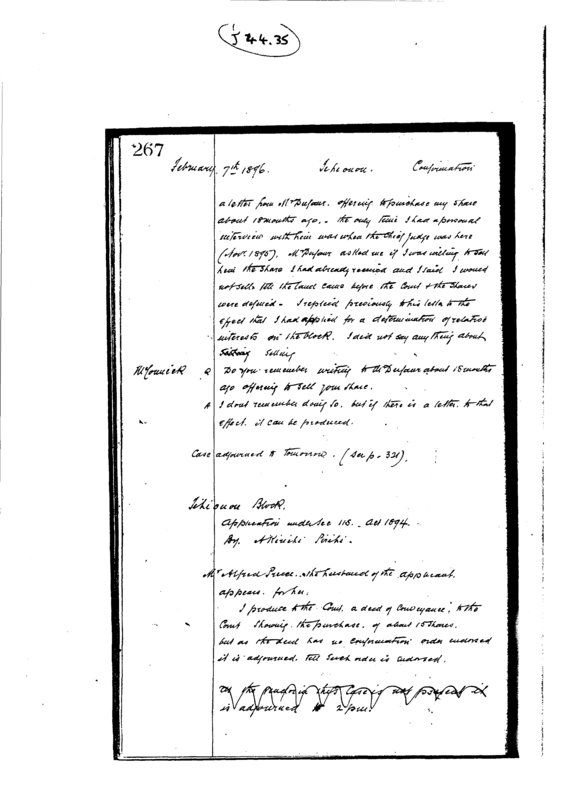 J 44.35
267
February 7th 1896. Ihionou. Confirmation
a letter from Mr Dufaur. offering to purchase my share
about 18 months ago. - the only time I had a personal
interview with him was when the Chief Judge was here
(Novr. 1895). Mr Dufaur asked me if I was willing to sell
him the share I had already received and I said I would
not sell till the land came before the Court & the Shares
were defined - I replied previously to his letter to the
effect that I had applied for a determination of relative
interests in the block. I did not say anything about
selling
McCormick Q Do you remember writing to Mr Dufaur about 18 months
ago offering to sell your share.
A I dont remember doing so. but if there is a letter. to that
effect. it can be produced.
Case adjourned to Tomorrow. (See p. 321)
Block.
Application under Sec 118. Act 1894.
By.
Mr Alfred Preece. the husband of the applicant.
appears. for her.
I produce to the Court. a deed of Conveyance, to the
Court showing. the purchase. of about 15 shares.
but as the deed has no confirmation order endorsed
it is adjourned. till such order is endorsed.
this case is not
is adjourned to 2 pm.